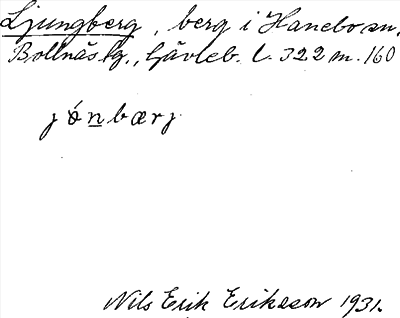 Ljungberg, berg i Hanebo sn.
Bollnäs kg., Gävleb. l. 322 m. 160
jónbærj
Nils Erik Eriksson 1931.